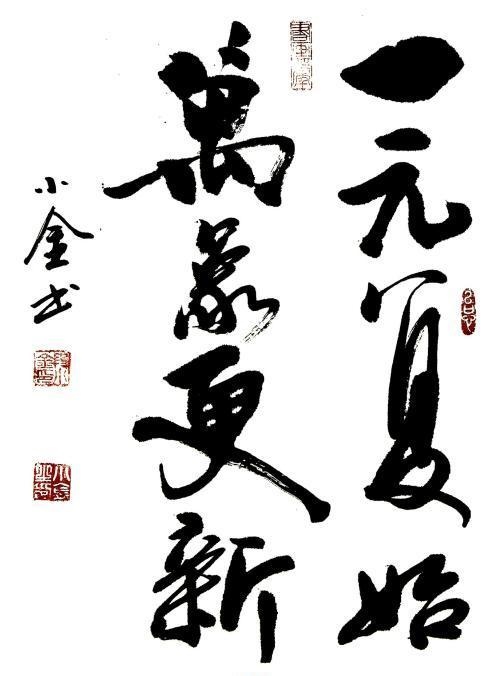 一元复始
萬象更新
小金书